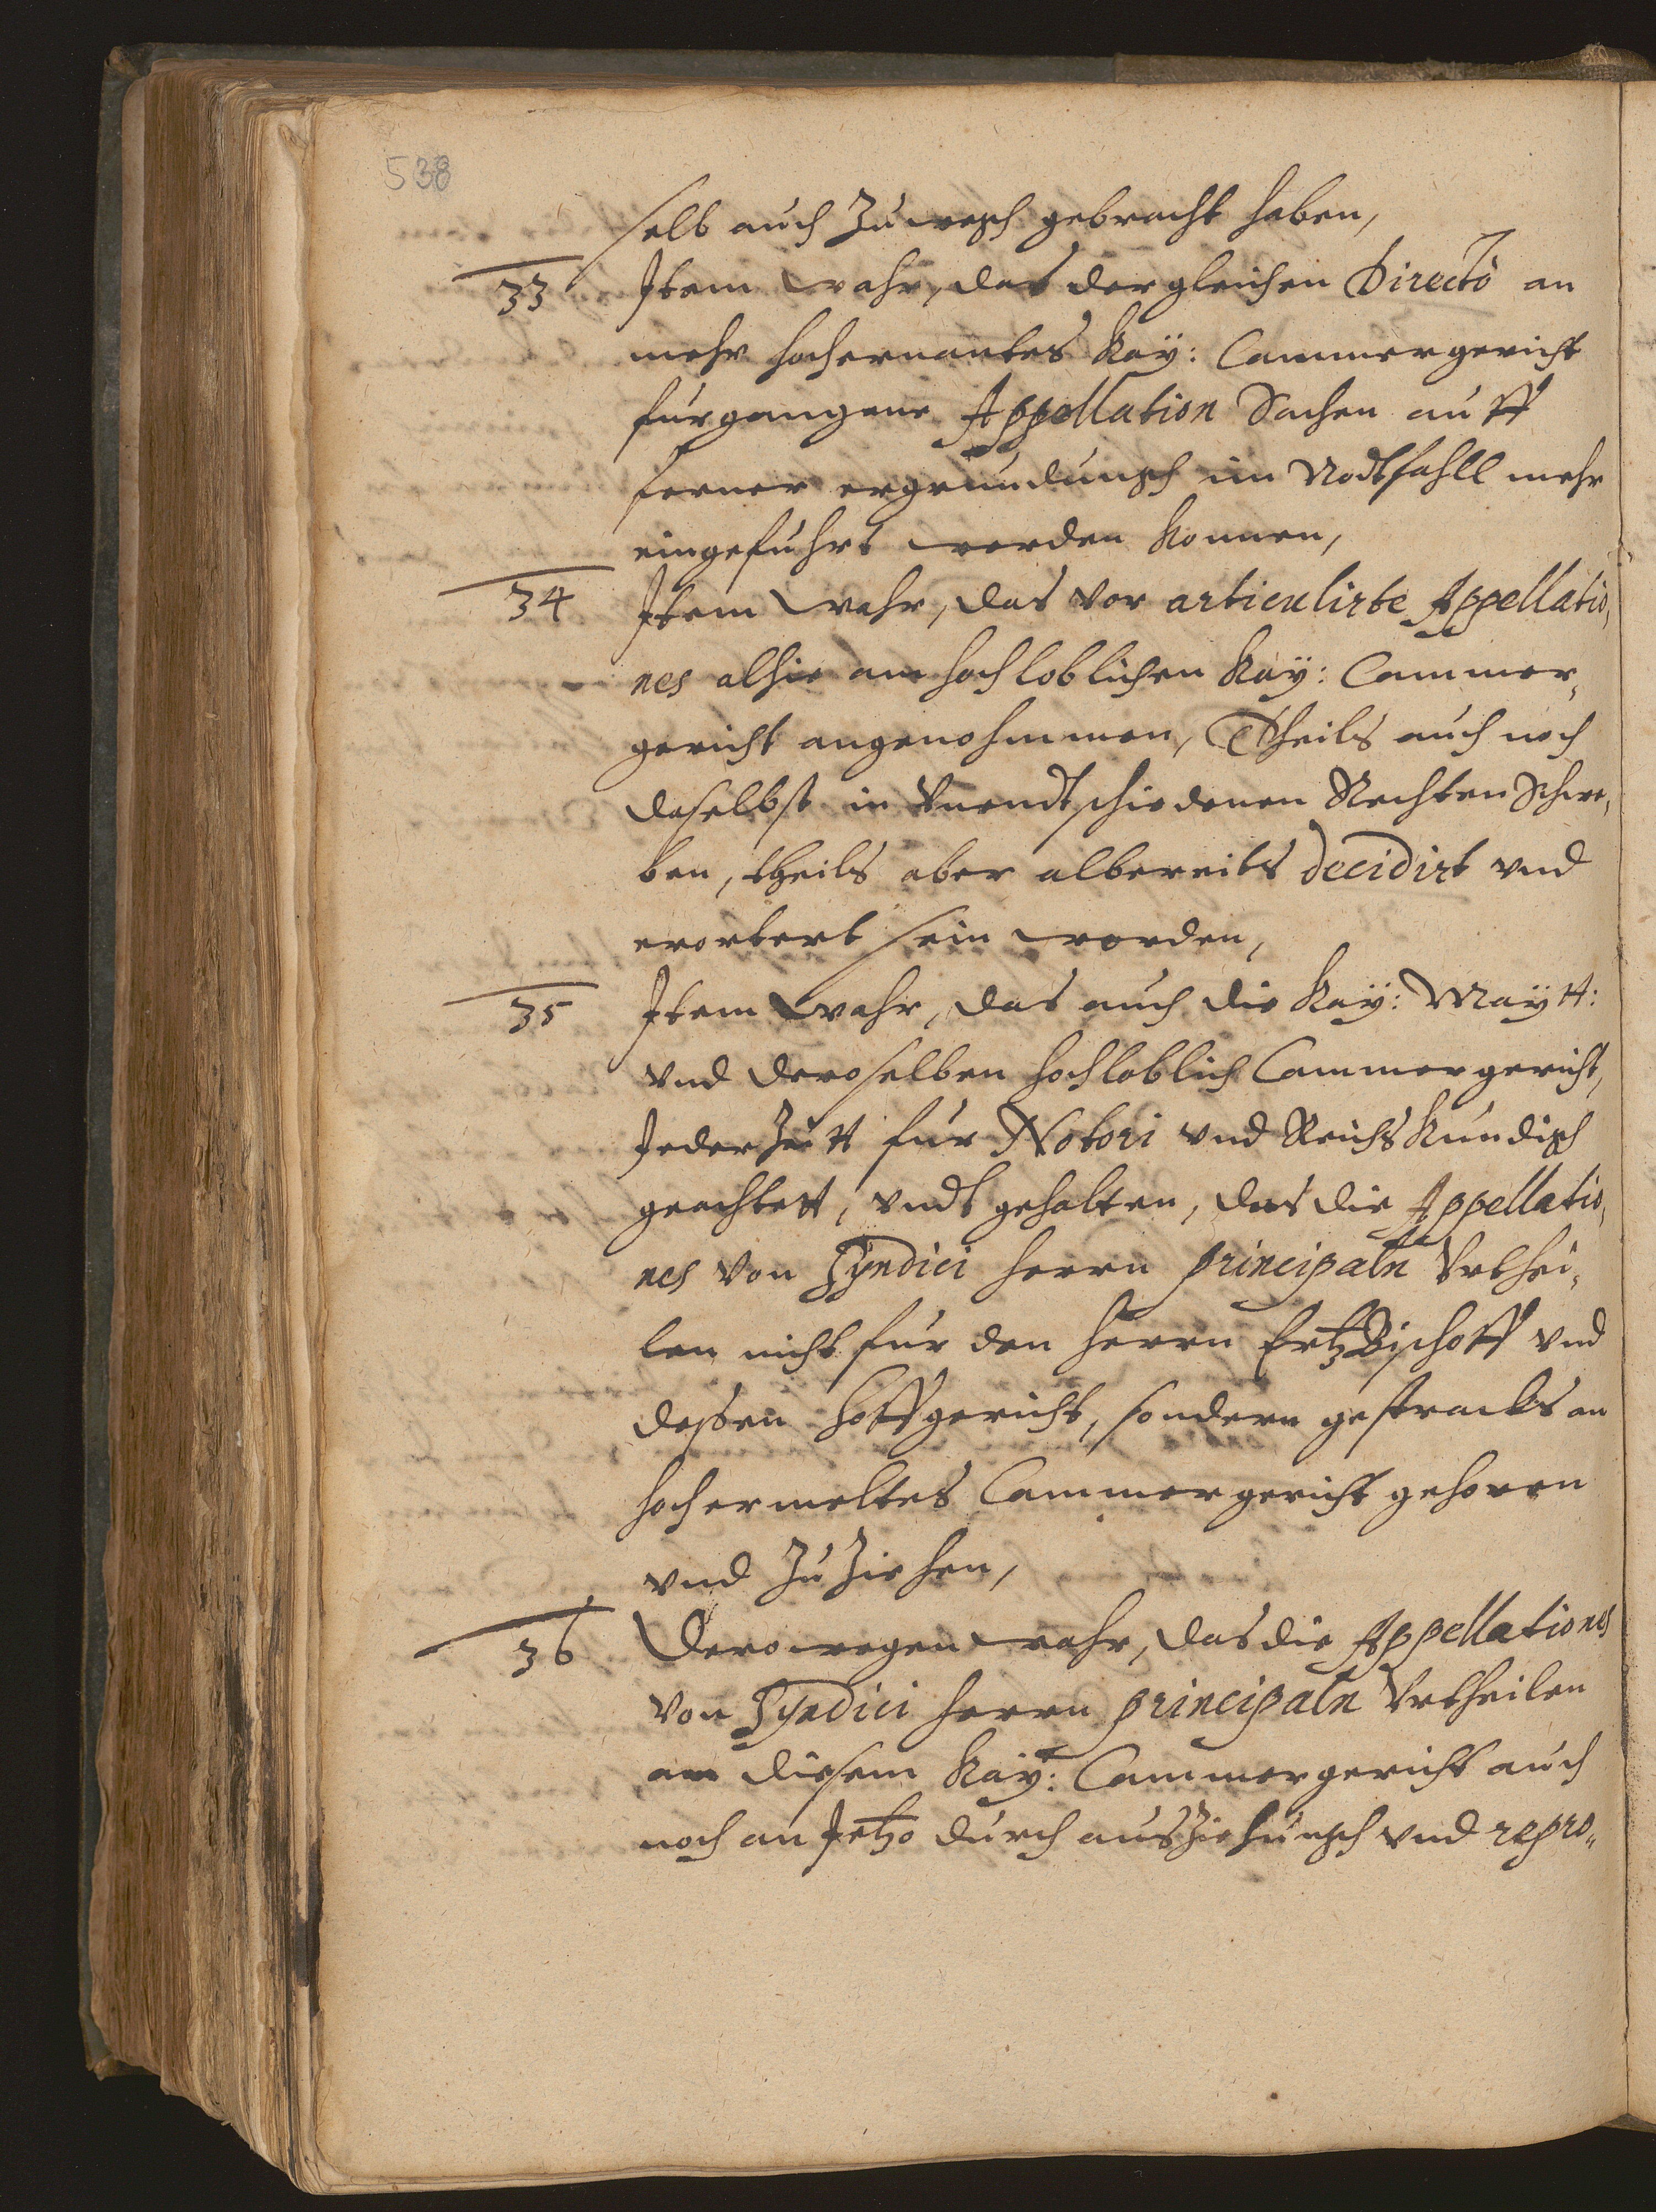 538
selb auch Zu wegh gebracht haben,
33 Item wahr, das dergleichen Directò an
mehr hochernantes Kaÿ: Cammergericht
furgangene Appellation Sachen auff
ferner ergrundungh im Nodtfahll mehr
eingefuhrt werden konnen,
34 Item wahr, das vor articulirte Appellatio,
nes alhie am hochloblichen Kaÿ: Cammer,
gericht angenohmmen, Theils auch noch
daselbst in Vnendtschiedenen Rechten Schwe,
ben, theils aber albereits decidirt vnd
erortert sein worden,
35 Item wahr, das auch die Kaÿ: Maÿtt:
vnd deroselben hochloblich Cammergericht,
JederZeitt fur Notori vnd Reichskundigh
geachtett, vndt gehalten, das die Appellatio,
nes von Syndici herrn principaln Vrthei,
len nicht fur den herrn ErtzBischoff vnd
dessen Hoffgericht, sondern gestracks an
hochermeltes Cammergericht gehoren
vnd Zu Ziehen,
36 Derowegen wahr, das die Appellationes
von Syndici herrn principaln Vrtheilen
am diesem Kaÿ: Cammergericht auch
noch an Jetzo durch ausZiehungh vnd repro,,